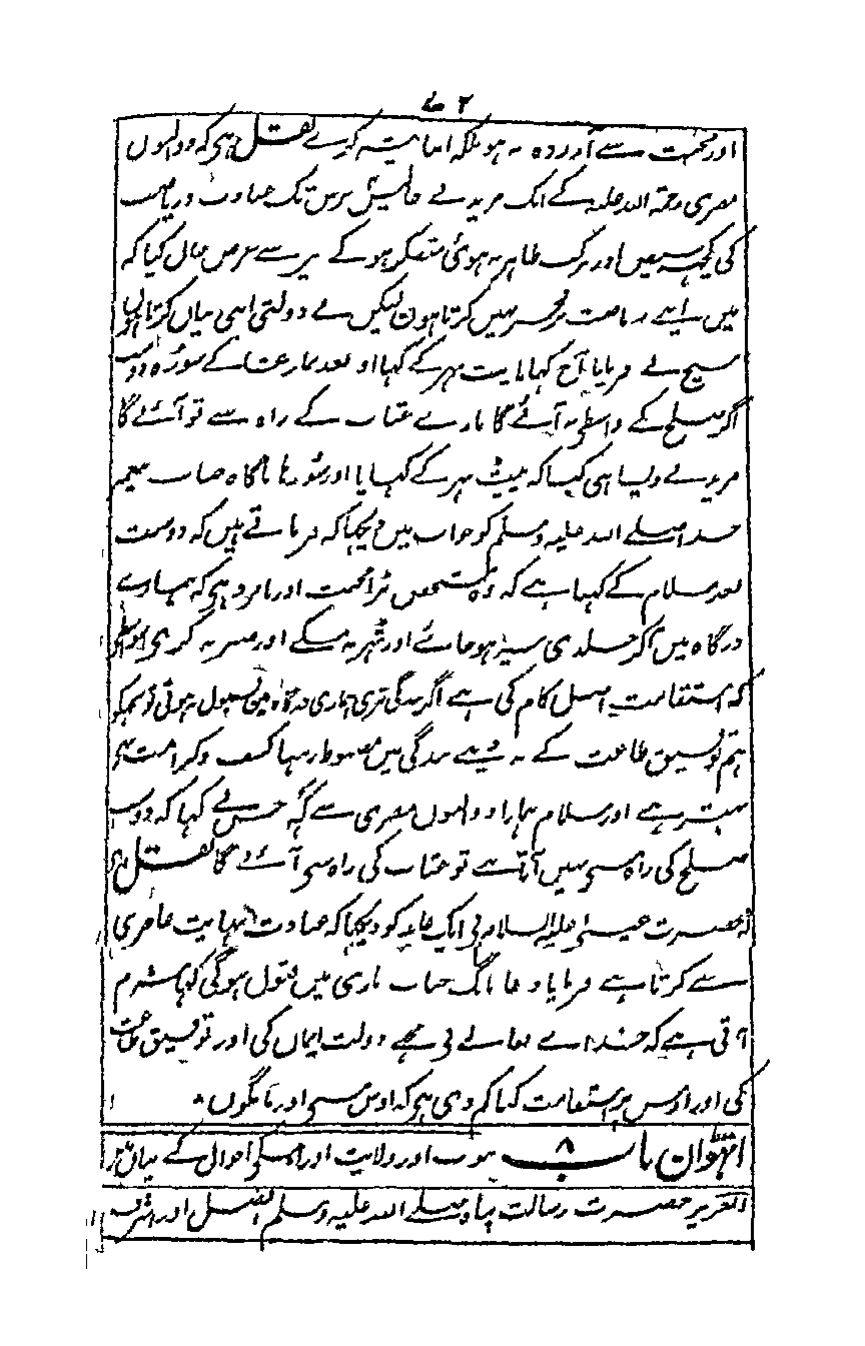 اور محنت سے آزردہ نہ ہو بلکہ انابت کرے نقل ہی کہ ذوالنون
مصری رحمۃ اللہ علیہ کے ایک مرید نے چالیس برس تک عبادت و ریاضت
کی کچھ بھیں اور برکت ظاہر نہ ہوئی متفکر ہو کے پیر سے عرض حال کیا کہ
میں اپنے ریاضت پر فخر نہیں کرتا ہون لیکن بے دولتی اپنی بیاں کرتا ہوں
شیخ نے فرمایا آج کھانا پیٹ بھر کے کھا اور بعد نماز عشا کے سو رہ دوست
اگر صلح کے واسطے نہ آئے گا بارے عتاب کے راہ سے تو آئے گا
مرید نے ویسا ہی کیا کہ پیٹ بھر کے کھایا اور سو رہا ناگاہ جناب پیغمبر
خدا صلے اللہ علیہ وسلم کو خواب میں دیکھا کہ فرماتے ہیں کہ دوست
بعد سلام کے کہا ہے کہ وہ شخص بڑا مخنث اور نامرد ہی کہ ہمارے
درگاہ میں آکر جلدی سیر ہو جائے اور ٹھہر نہ سکے اور صبر نہ کرے اس واسطے
کہ استقامت اصل کام کی ہے اگر بندگی تیری ہماری درگاہ میں قبول نہ ہوتی تو تجھکو
ہم توفیق طاعت کے نہ دیتے بندگی میں مضبوط رہنا کشف و کرامت سے
بہتر ہے اور سلام ہمارا ذوالنون مصری سے کہہ جس نے کہا کہ دوست
صلح کی راہ سے نہیں آتا ہے تو عتاب کی راہ سے آئے گا نقل ہی
کہ حضرت عیسیٰ علیہ السلام نی ایک عابد کو دیکھا کہ عبادت نہایت عاجزی
سے کرتا ہے فرمایا دعا مانگ جناب باری میں قبول ہوگی کہا شرم
آتی ہے کہ خدا تعالے نی مجھے دولت ایمان کی اور توفیق طاعت
کی اور اوس پر استقامت کیا کم دی ہی کہ اوس سے اور مانگوں
آٹھواں باب ۸ نبوت اور ولایت اور اوسکی احوال کے بیان میں
العزیز حضرت رسالت پناہ صلے اللہ علیہ وسلم افضل اور اشرف